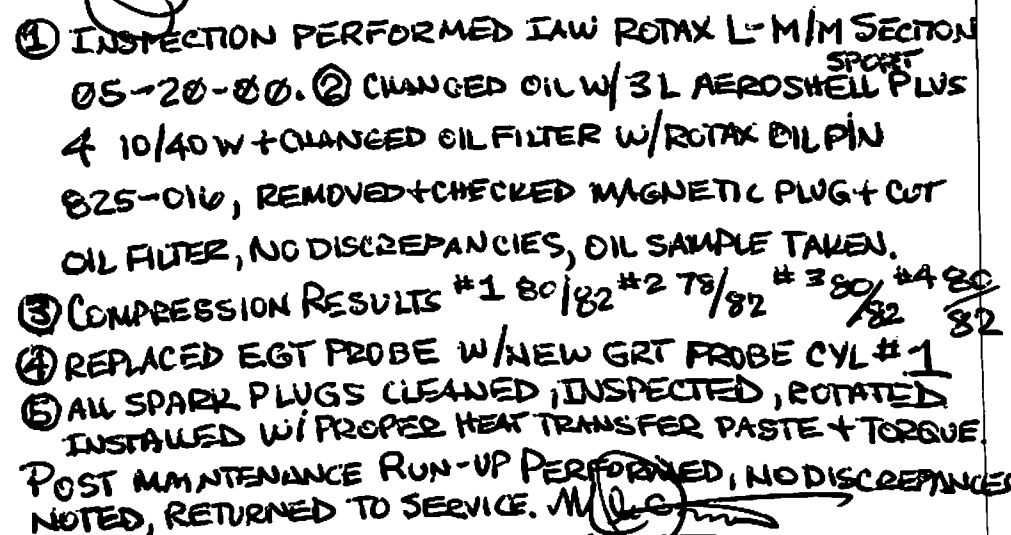 ① INSPECTION PERFORMED IAW ROTAX L-M/M SECTION
05-20-00. ② CHANGED OIL W/ 3L AEROSHELL SPORT PLUS
4 10/40W + CHANGED OIL FILTER W/ROTAX OIL P/N
825-016, REMOVED + CHECKED MAGNETIC PLUG + CUT
OIL FILTER, NO DISCREPANCIES, OIL SAMPLE TAKEN.
③ COMPRESSION RESULTS #1 80/82 #2 78/82 #3 80/82 #4 80/82
④ REPLACED EGT PROBE W/NEW GRT PROBE CYL #1
⑤ ALL SPARK PLUGS CLEANED, INSPECTED, ROTATED
INSTALLED W/ PROPER HEAT TRANSFER PASTE + TORQUE.
POST MAINTENANCE RUN-UP PERFORMED, NO DISCREPANCIES
NOTED, RETURNED TO SERVICE.